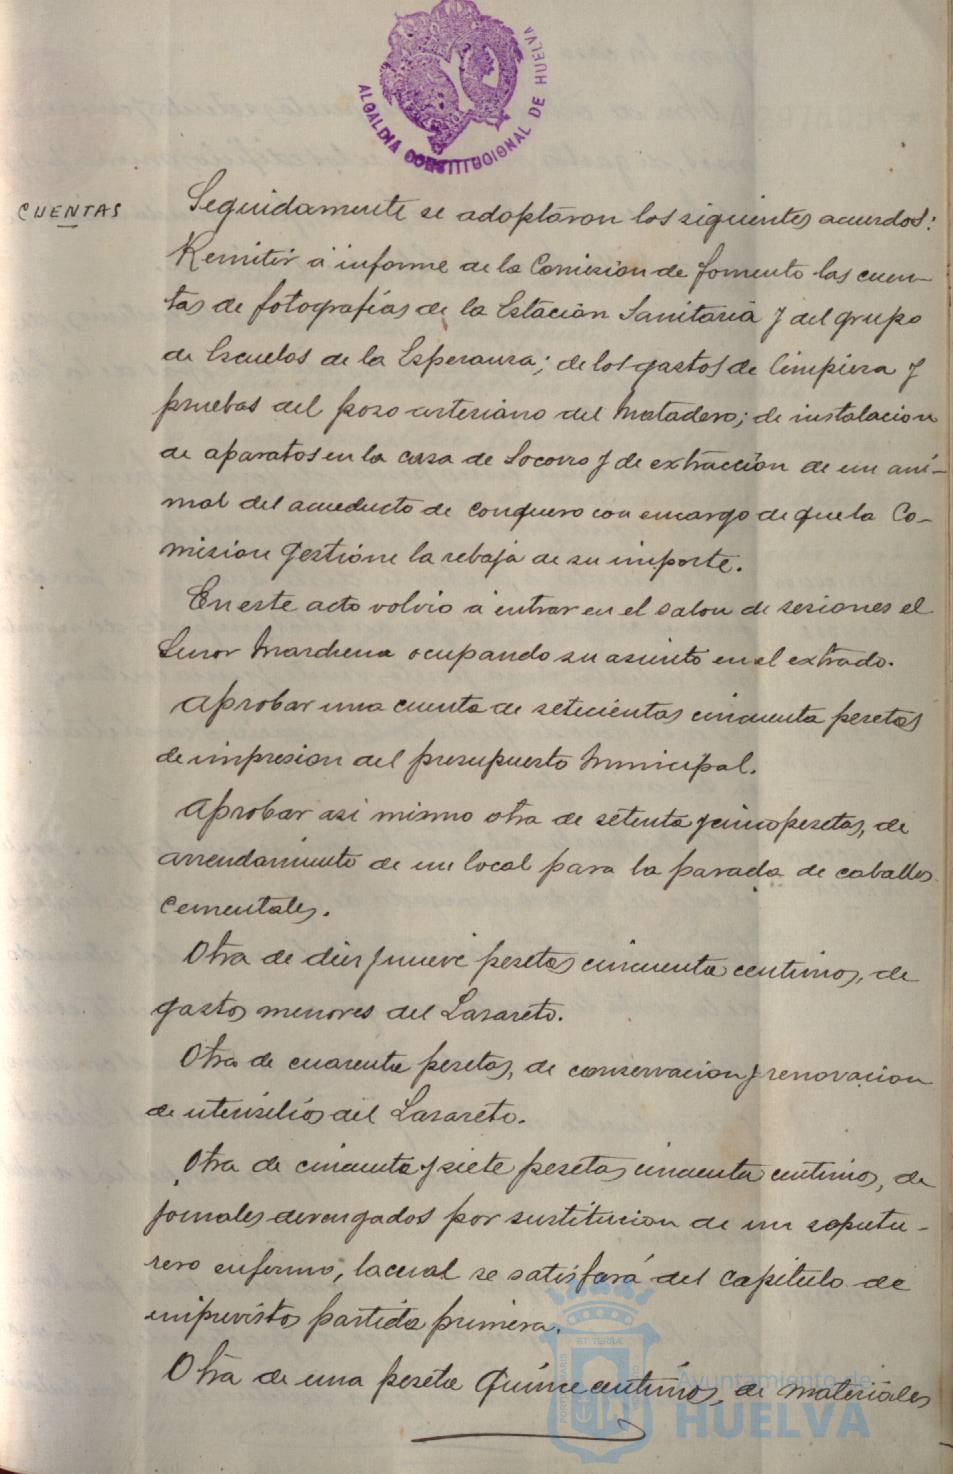 ALCALDIA CONSTITUCIONAL DE HUELVA
CUENTAS
Seguidamente se adoptaron los siguientes acuerdos:
Remitir á informe de la Comision de fomento las cuen-
tas de fotografías de la Estación Sanitaria y del grupo
de Escuelas de la Esperanza; de los gastos de limpieza y
pruebas del pozo artesiano del Matadero; de instalacion
de aparatos en la casa de Socorro y de extracción de un ani-
mal del acueducto de conquero con encargo de que la Co-
mision gestione la rebaja de su importe.
En este acto volvió á entrar en el salon de sesiones el
Senor Marchena ocupando su asiento en el extrado.
Aprobar una cuenta de setecientas cincuenta pesetas
de impresion del presupuesto Municipal.
Aprobar asi mismo otra de setenta y cinco pesetas, de
arrendamiento de un local para la parada de caballos
cementales.
Otra de diez y nueve pesetas cincuenta centimos, de
gastos menores del Lazareto.
Otra de cuarenta pesetas, de conservacion y renovacion
de utensilios del Lazareto.
Otra de cincuenta y siete pesetas cincuenta centimos, de
jornales devengados por sustitucion de un sepultu-
rero enfermo, la cual se satisfará del capitulo de
imprevistos partida primera.
Otra de una peseta quince centimos, de materiales
Ayuntamiento de
HUELVA